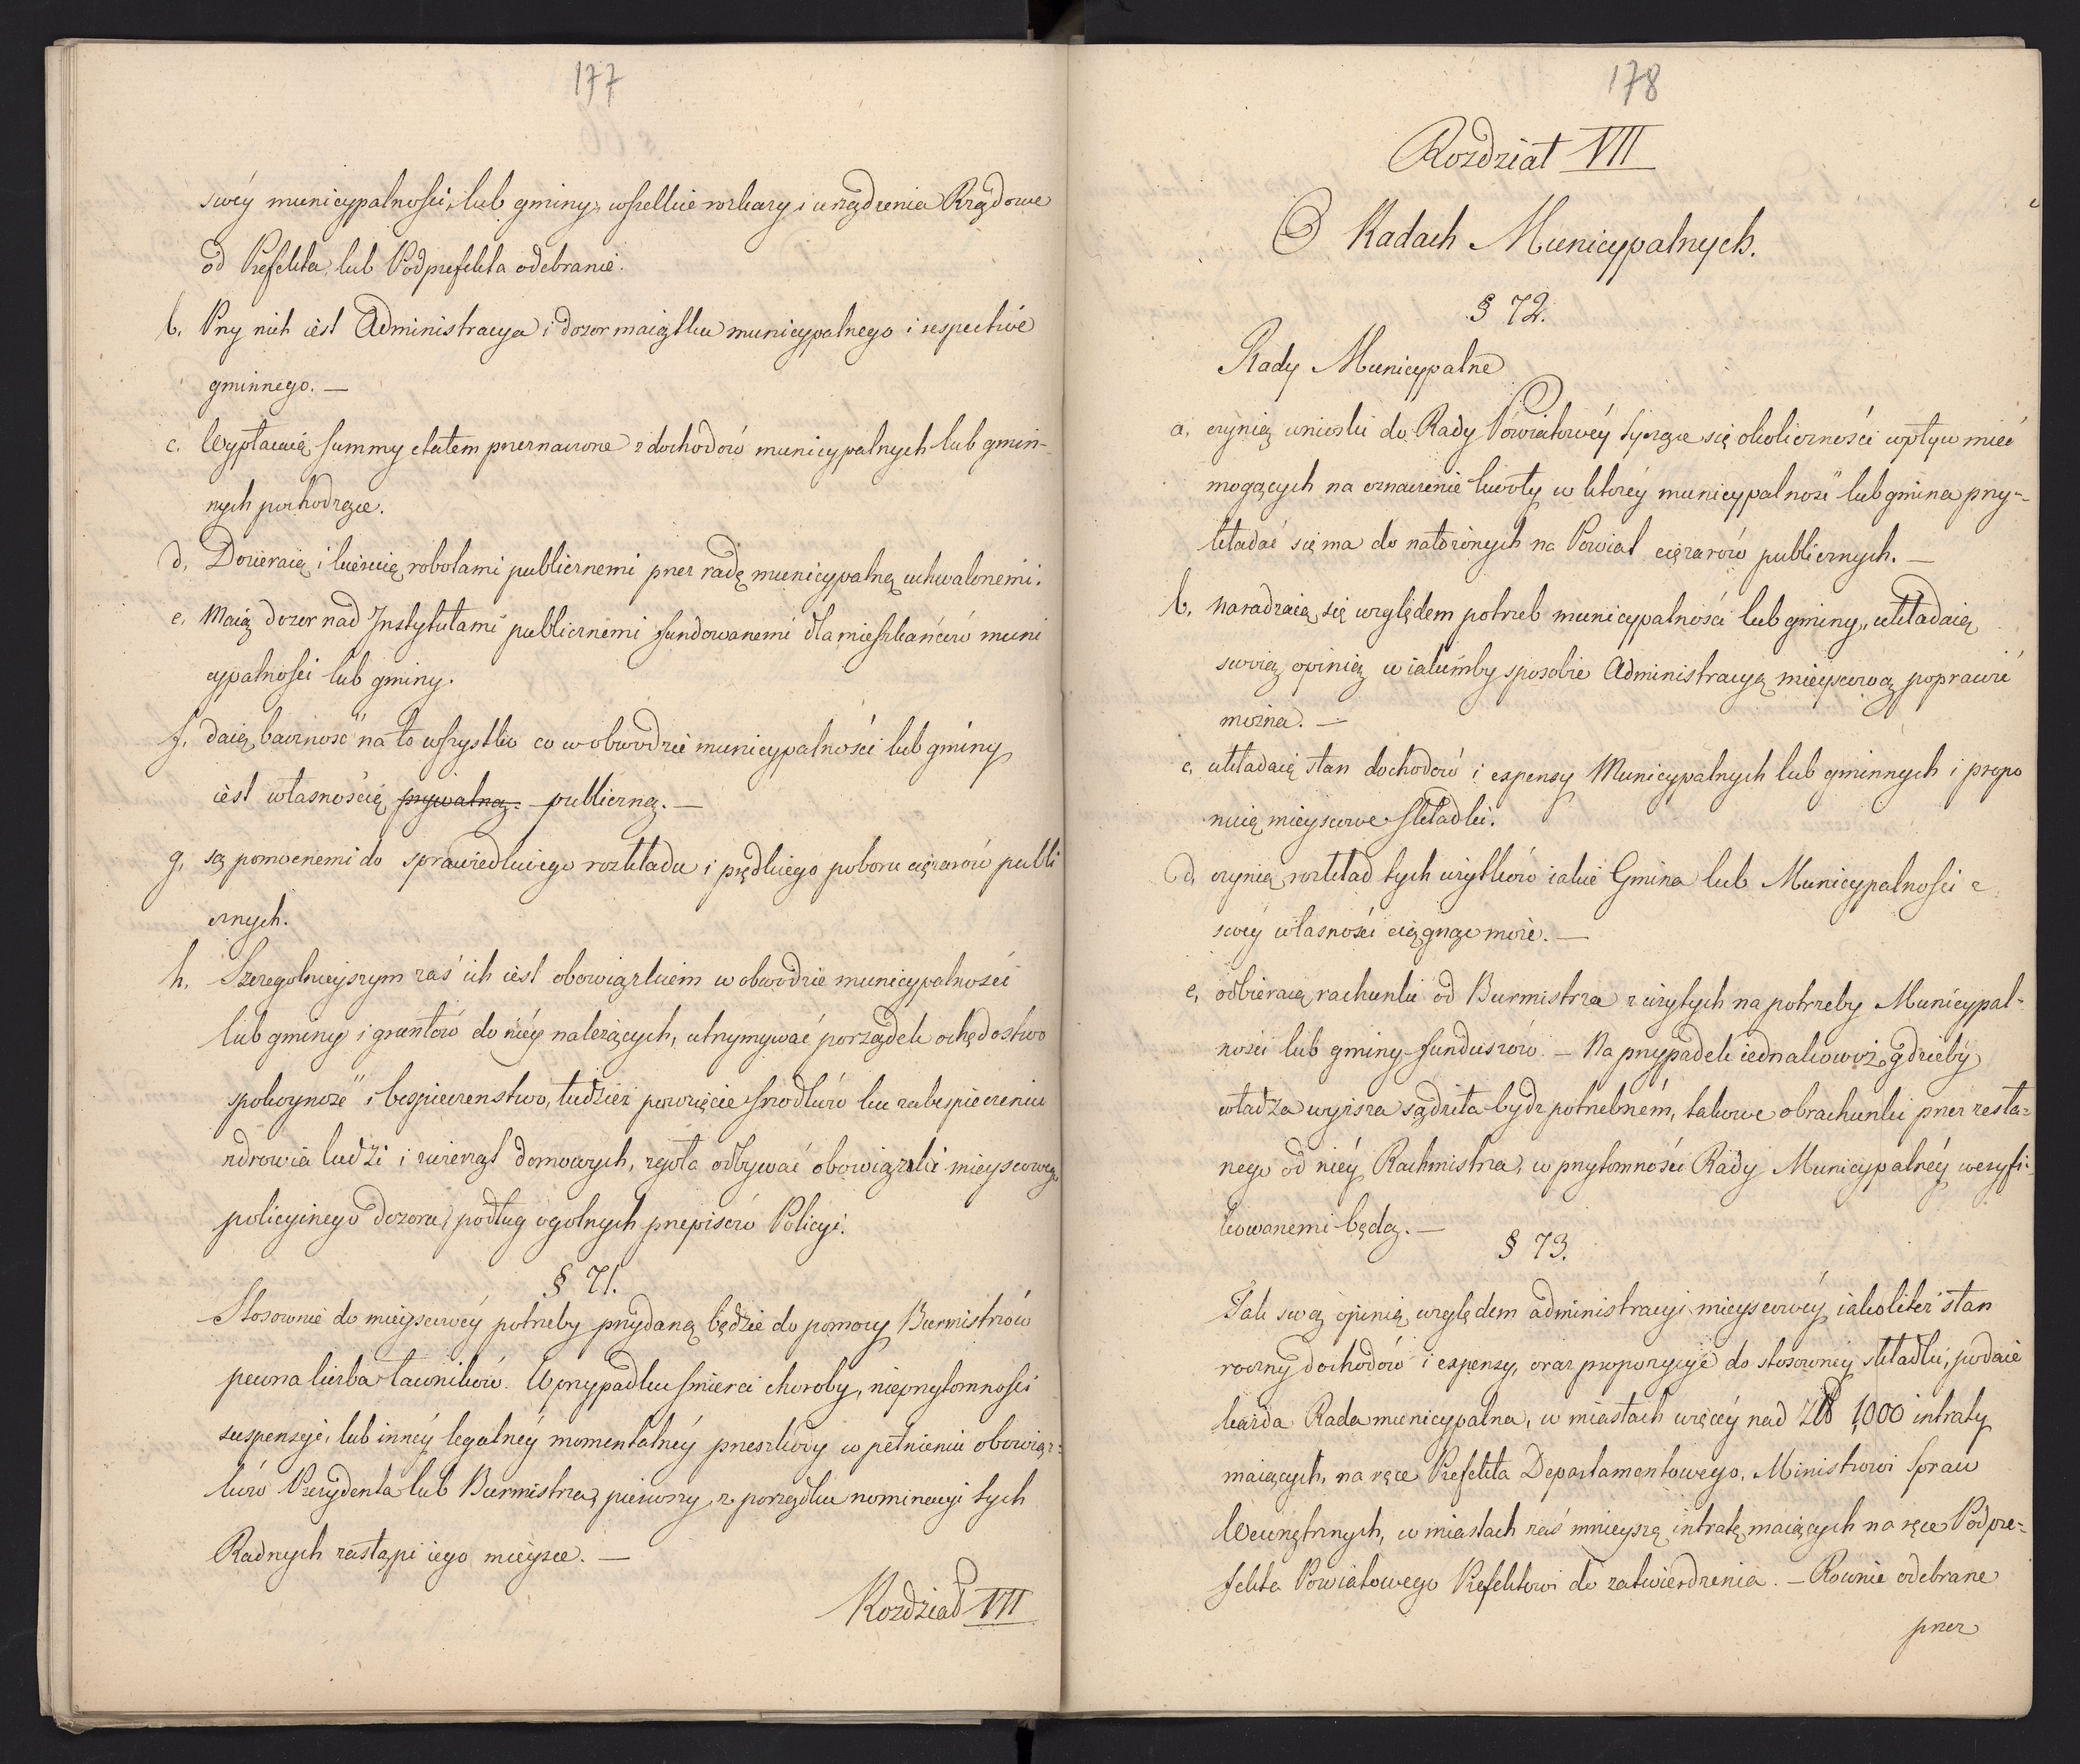 177
swéy municypalności, lub gminy, wszelkie rozkazy i urządzenia Rządowe
od Prefekta, lub Podprefekta odebranie.
b. Przy nich iest Administracya i dozor maiątku municypalnego i respective
gminnego. —
c. Wypłacaią summy etatem przeznaczone z dochodów municypalnych lub gmin-
nych pochodzące.
d. Dozieraią i kieruią robotami publicznemi przez radę municypalną uchwalonemi.
e. Maią dozor nad Instytutami publicznemi fundowanemi dla mieszkańców muni
cypalności lub gminy.
f. daią baczność na to wszystko co w obwodzie municypalności lub gminy
iest własnością prywatną. publiczną. —
g. są pomocnemi do sprawiedliwego rozkładu i prędkiego poboru ciężarów publi
cznych.
h. Szczegolnieyszym zaś ich iest obowiązkiem w obwodzie municypalności
lub gminy i gruntów do niéy należących, utrzymywać porządek ochędostwo
spokoyność i bespieczenstwo, tudzież powzięcie srodków ku zabespieczeniu
zdrowia ludzi i zwierząt domowych, zgoła odbywać obowiązki mieyscowego
policyinego dozoru, podług ogolnych przepisów Policyi.
§ 71.
Stosownie do mieyscowéy potrzeby przydaną będzie do pomocy Burmistrzów
pewna liczba ławników. W przypadku śmierci choroby, nieprzytomności
suspensyi, lub innéy legalnéy momentalnéy przeszkody w pełnieniu obowiąz=
ków Prezydenta lub Burmistrza, pierwszy z porządku nominacyi tych
Radnych zastąpi iego mieysce. —
Rozdział VII
178
Rozdział VII
O Radach Municypalnych.
§ 72.
Rady Municypalne
a. czynią wnioski do Rady Powiatowéy tyczące się okoliczności wpływ mieć
mogących na oznaczenie kwoty w któréy municypalność lub gmina przy=
kładać się ma do nałożonych na Powiat ciężarów publicznych. —
b. naradzaią się względem potrzeb municypalności lub gminy, układaią
swoią opinią w iakimby sposobie Administracyą mieyscową poprawić
można. —
c. układaią stan dochodów i expensy Municypalnych lub gminnych i propo
nuią mieyscowe składki.
d. czynią rozkład tych użytków iakie Gmina lub Municypalności z
swéy własności ciągnąc może. —
e. odbieraią rachunki od Burmistrza z użytych na potrzeby Municypal=
ności lub gminy funduszów. — Na przypadek iednakowoż gdzieby
władza wyższa sądziła bydz potrzebném, takowe obrachunki przez zesła=
nego od niéy Rachmistrza, w przytomności Rady Municypalnéy weryfi=
kowanemi będą. —
§ 73.
Tak swą opinią względem administracyi mieyscowéy iakoliteż stan
roczny dochodów i expensy, oraz propozycye do stosowney składki, podaie
każda Rada municypalna, w miastach więcéy nad Zł 1,000 intraty
maiących, na ręce Prefekta Departamentowego, Ministrowi Spraw
Wewnętrznych, w miastach zaś mnieyszą intratę maiących na ręce Podpre=
fekta Powiatowego Prefektowi do zatwierdzenia. — Rownie odebrane
przez